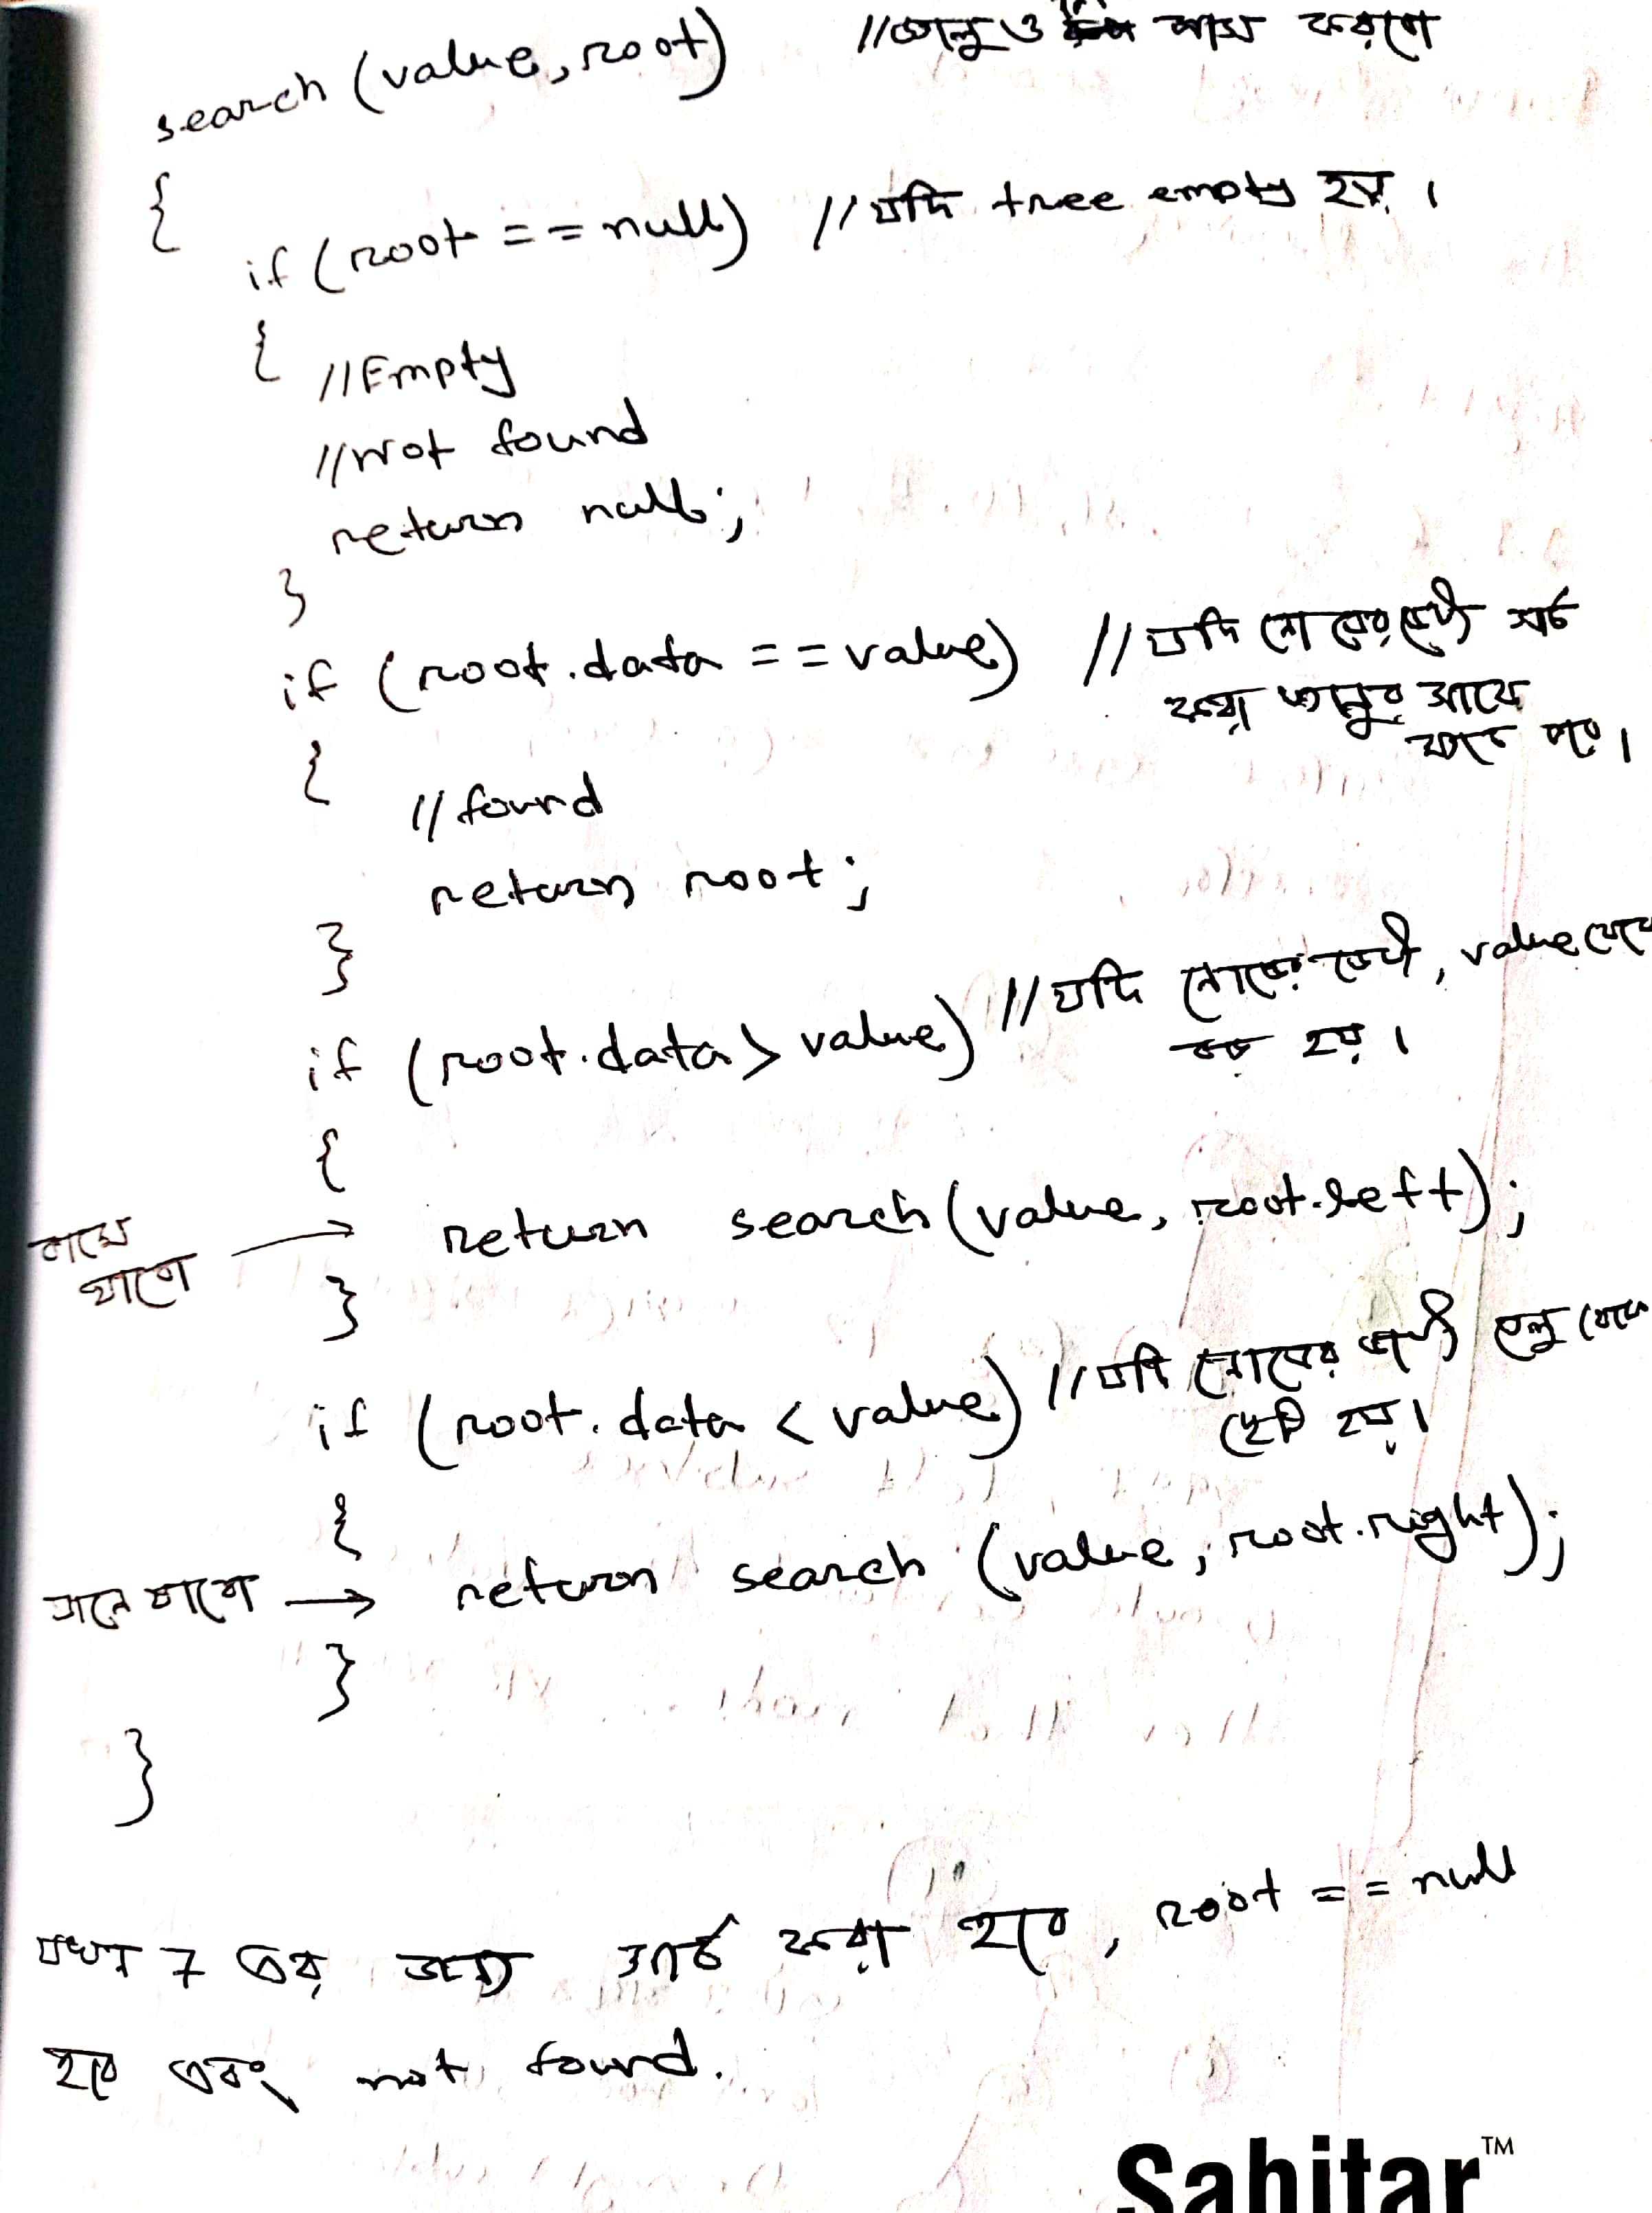 search (value, root) //ভ্যালু ও পাস করবো
{
if (root == null) //যদি tree empty হয়।
{ //Empty
//Not found
return null;
}
if (root.data == value) //যদি সার্চ
করা ভ্যালুর সাথে
{
//found
return root;
}
if (root.data > value) //যদি নোডের ডেটা, value থেকে
বড় হয়।
{
বামে
যাবো → return search (value, root.left);
}
if (root.data < value) //যদি নোডের ডেটা ভ্যলু থেকে
ছোট হয়।
{
ডানে যাবো → return search (value, root.right);
}
}
যখন 7 এর জন্য সার্চ করা হবে, root == null
হবে এবং not found.
Sahitar™